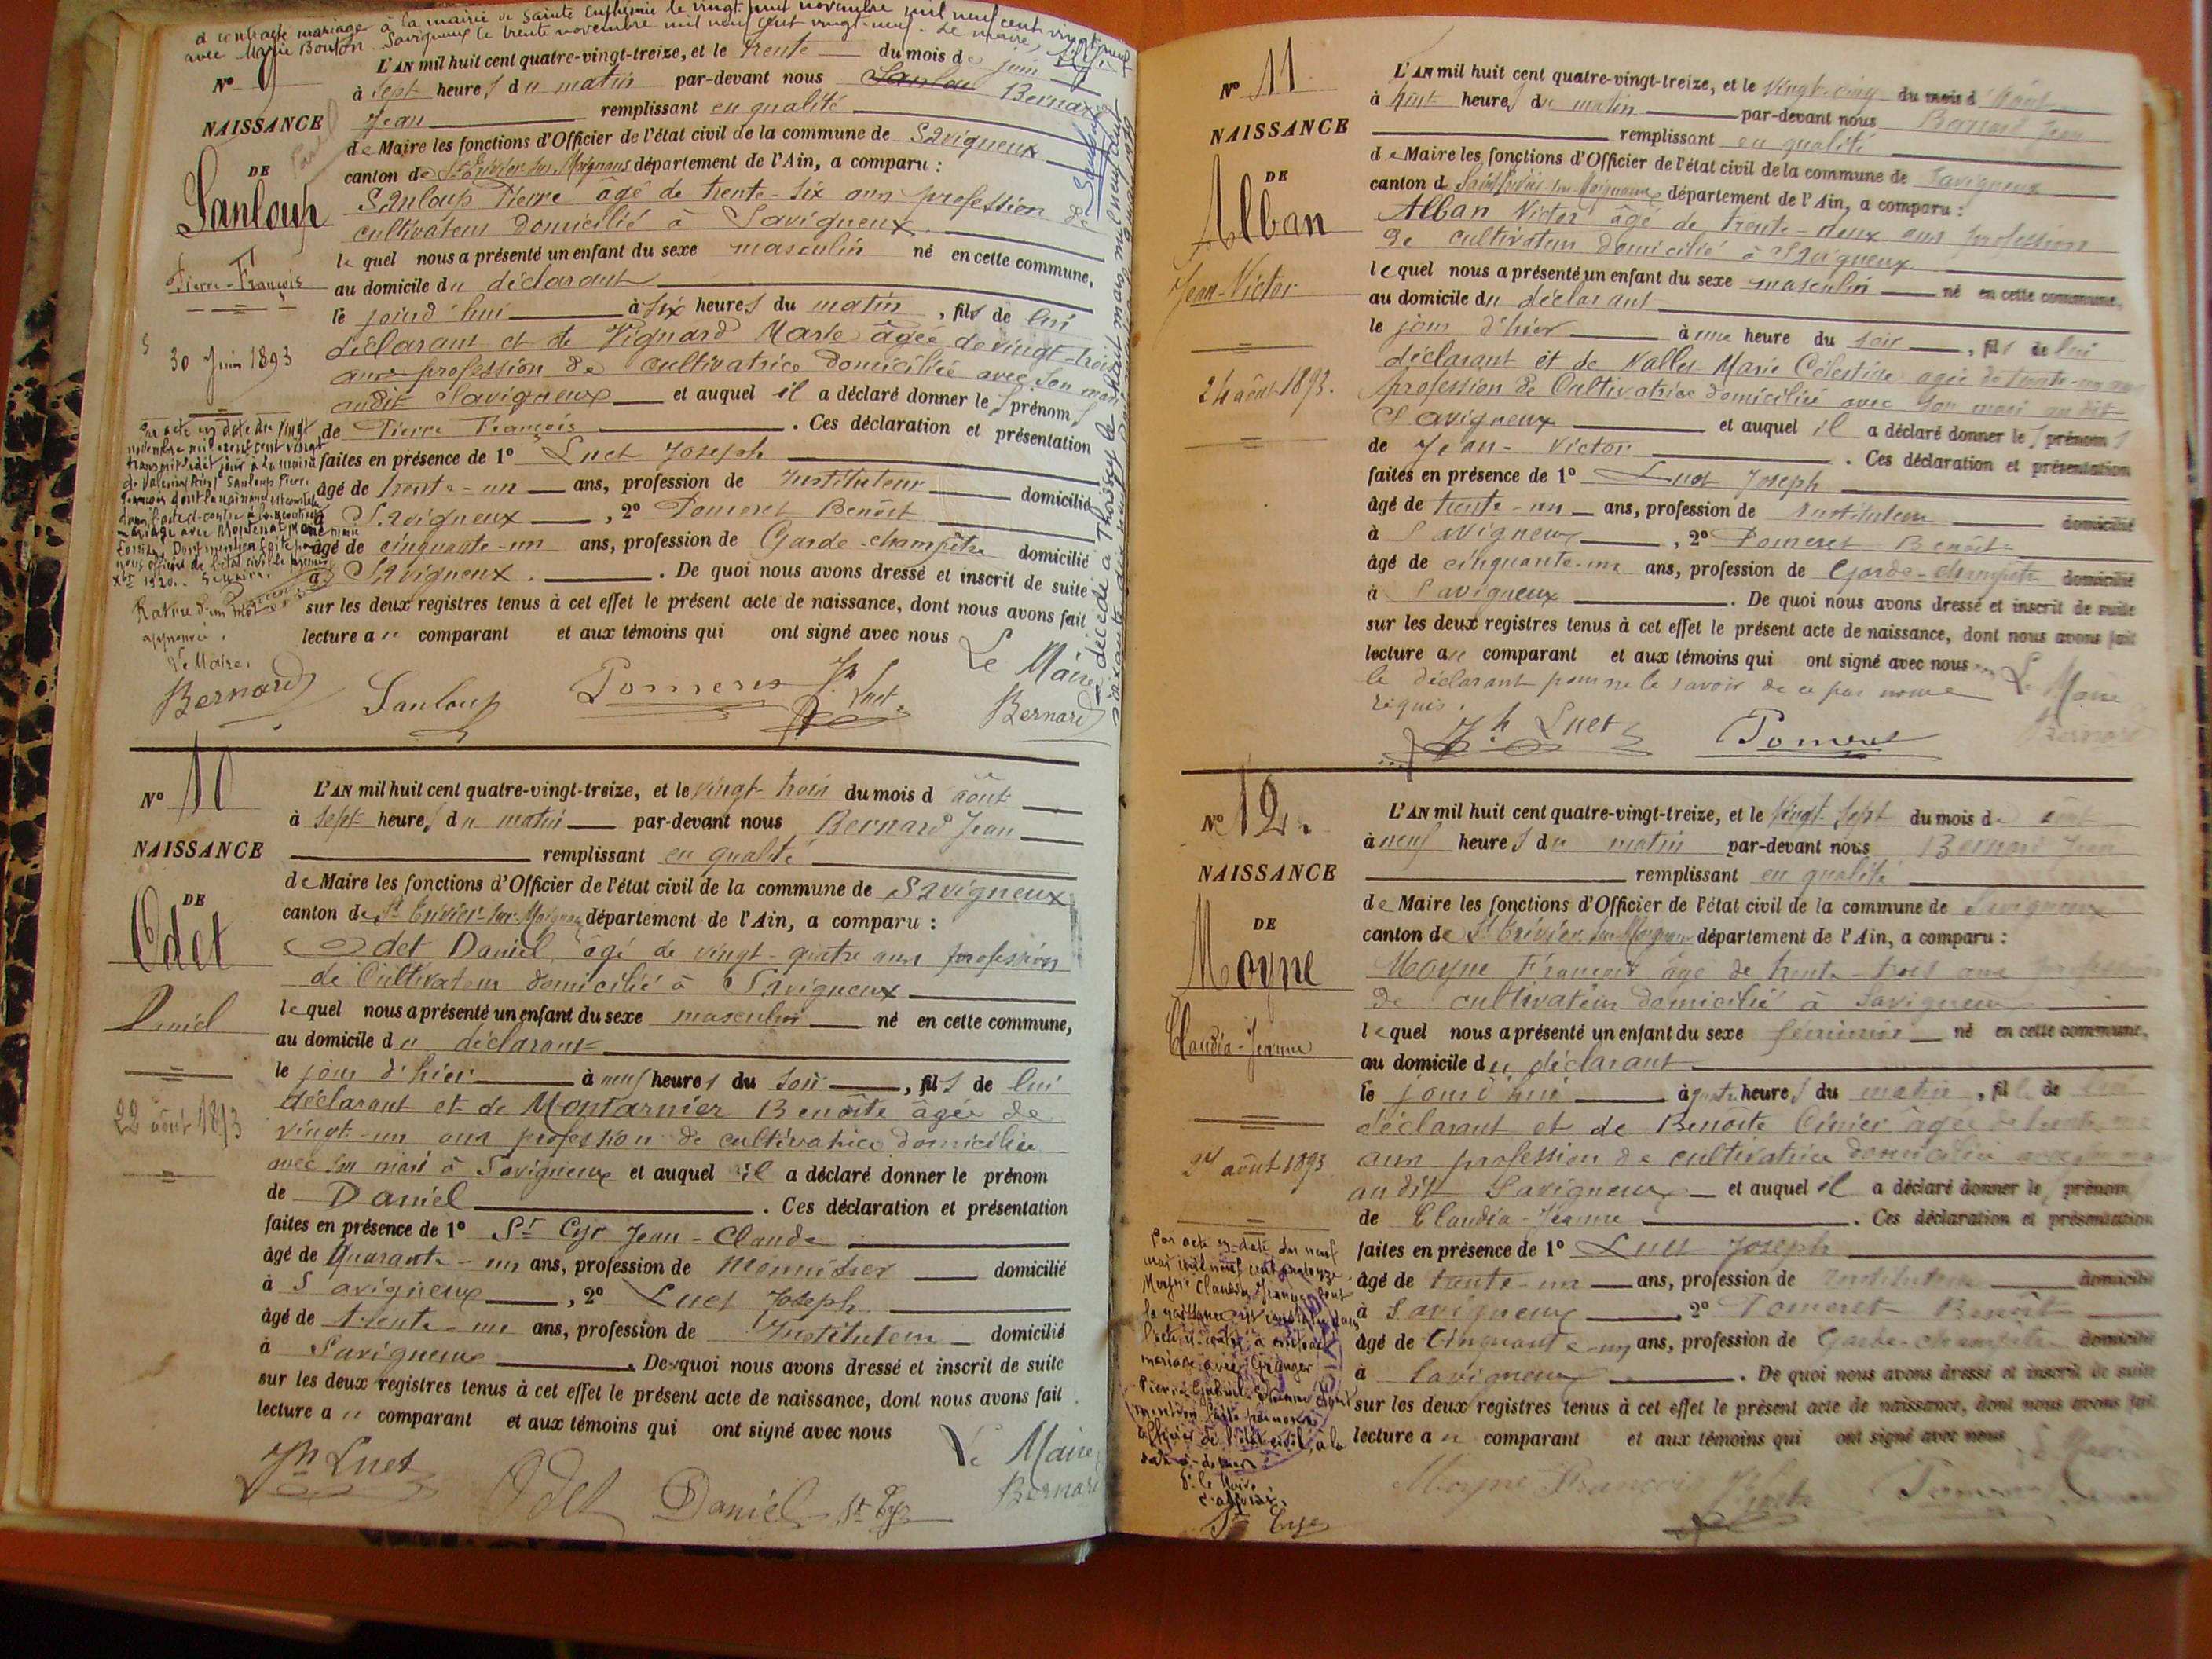 a contracté mariage à la mairie de Sainte Euphémie le vingt huit novembre mil neuf cent vingt neuf
avec Marie Bouton. Savigneux le trente novembre mil neuf cent vingt-neuf. Le maire,
N° 9
NAISSANCE
DE
Sanloup
Pierre-François
30 Juin 1893
L'AN mil huit cent quatre-vingt-treize, et le trente du mois de juin
à sept heures du matin par-devant nous Sanloup Bernard
Jean remplissant en qualité
de Maire les fonctions d'Officier de l'état civil de la commune de Savigneux
canton de St Trivier-sur-Moignans département de l'Ain, a comparu :
Sanloup Pierre âgé de trente-six ans profession de
cultivateur domicilié à Savigneux
lequel nous a présenté un enfant du sexe masculin né en cette commune,
au domicile du déclarant
le jourd'hui à six heures du matin, fils de lui
déclarant et de Vignard Marie âgée de vingt-trois
ans profession de cultivatrice domiciliée avec son mari
audit Savigneux et auquel il a déclaré donner les prénoms
de Pierre François. Ces déclaration et présentation
faites en présence de 1° Luet Joseph
âgé de trente-un ans, profession de Instituteur domicilié
à Savigneux, 2° Pomeret Benoît
âgé de cinquante-un ans, profession de Garde-champêtre domicilié
à Savigneux. De quoi nous avons dressé et inscrit de suite
sur les deux registres tenus à cet effet le présent acte de naissance, dont nous avons fait
lecture au comparant et aux témoins qui ont signé avec nous
Le Maire
Bernard
Sanloup
Pomeret
Jh Luet
Bernard
Par acte en date du vingt
novembre mil neuf cent vingt
transmis
de Sanloup Pierre
François dont la naissance est constatée
dans l'acte ci-contre a contracté
mariage avec
Dont mention faite par
nous officier de l'état civil le premier
Xbre 1920.
Rature d'un mot
approuvée.
Le Maire,
décédé à Thoissey le
N° 10
NAISSANCE
DE
Odet
Daniel
22 août 1893
L'AN mil huit cent quatre-vingt-treize, et le vingt-trois du mois d'août
à sept heures du matin par-devant nous Bernard Jean
remplissant en qualité
de Maire les fonctions d'Officier de l'état civil de la commune de Savigneux
canton de St Trivier-sur-Moignans département de l'Ain, a comparu :
Odet Daniel âgé de vingt-quatre ans profession
de Cultivateur domicilié à Savigneux
lequel nous a présenté un enfant du sexe masculin né en cette commune,
au domicile du déclarant
le jour d'hier à neuf heures du soir, fils de lui
déclarant et de Montarnier Benoîte âgée de
vingt-un ans profession de cultivatrice domiciliée
avec son mari à Savigneux et auquel il a déclaré donner le prénom
de Daniel. Ces déclaration et présentation
faites en présence de 1° St Cyr Jean-Claude
âgé de Quarante-un ans, profession de Menuisier domicilié
à Savigneux, 2° Luet Joseph
âgé de trente-un ans, profession de Instituteur domicilié
à Savigneux. De quoi nous avons dressé et inscrit de suite
sur les deux registres tenus à cet effet le présent acte de naissance, dont nous avons fait
lecture au comparant et aux témoins qui ont signé avec nous
Le Maire
Jh Luet Odet Daniel St Cyr Bernard
N° 11
NAISSANCE
DE
Alban
Jean-Victor
24 août 1893.
L'AN mil huit cent quatre-vingt-treize, et le vingt-cinq du mois d'août
à huit heures du matin par-devant nous Bernard Jean
remplissant en qualité
de Maire les fonctions d'Officier de l'état civil de la commune de Savigneux
canton de Saint Trivier-sur-Moignans département de l'Ain, a comparu :
Alban Victor âgé de trente-deux ans profession
de cultivateur domicilié à Savigneux
lequel nous a présenté un enfant du sexe masculin né en cette commune,
au domicile du déclarant
le jour d'hier à une heure du soir, fils de lui
déclarant et de Vallet Marie Célestine agée de trente-un ans
profession de Cultivatrice domiciliée avec son mari au dit
Savigneux et auquel il a déclaré donner les prénoms
de Jean-Victor. Ces déclaration et présentation
faites en présence de 1° Luet Joseph
âgé de trente-un ans, profession de Instituteur domicilié
à Savigneux, 2° Pomeret Benoît
âgé de cinquante-un ans, profession de Garde-champêtre domicilié
à Savigneux. De quoi nous avons dressé et inscrit de suite
sur les deux registres tenus à cet effet le présent acte de naissance, dont nous avons fait
lecture au comparant et aux témoins qui ont signé avec nous non
le déclarant pour ne le savoir de ce par nous
requis.
Le Maire
Jh Luet Pomeret Bernard
N° 12.
NAISSANCE
DE
Moyne
Claudia-Jeanne
27 août 1893
L'AN mil huit cent quatre-vingt-treize, et le vingt-sept du mois de août
à neuf heures du matin par-devant nous Bernard Jean
remplissant en qualité
de Maire les fonctions d'Officier de l'état civil de la commune de Savigneux
canton de St Trivier-sur-Moignans département de l'Ain, a comparu :
Moyne François âgé de trente-trois ans profession
de cultivateur domicilié à Savigneux
lequel nous a présenté un enfant du sexe féminin né en cette commune,
au domicile du déclarant
le jourd'hui à quatre heures du matin, fille de lui
déclarant et de Benoîte Cinier âgée de trente
ans profession de cultivatrice domiciliée avec son mari
audit Savigneux et auquel il a déclaré donner les prénoms
de Claudia-Jeanne. Ces déclaration et présentation
faites en présence de 1° Luet Joseph
âgé de trente-un ans, profession de Instituteur domicilié
à Savigneux, 2° Pomeret Benoît
âgé de Cinquante-un ans, profession de Garde-champêtre domicilié
à Savigneux. De quoi nous avons dressé et inscrit de suite
sur les deux registres tenus à cet effet le présent acte de naissance, dont nous avons fait
lecture au comparant et aux témoins qui ont signé avec nous
Le Maire
Moyne François Jh Luet Pomeret Bernard
Par acte en date du neuf
mai mil neuf cent
Moyne Claudia Jeanne dont
la naissance est constatée dans
l'acte ci-contre a contracté
mariage avec Granger
Pierre Gabriel Etienne dont
mention faite par nous
officier de l'état civil, à la
date ci-dessus
P. le Maire
L'adjoint,
St Cyr